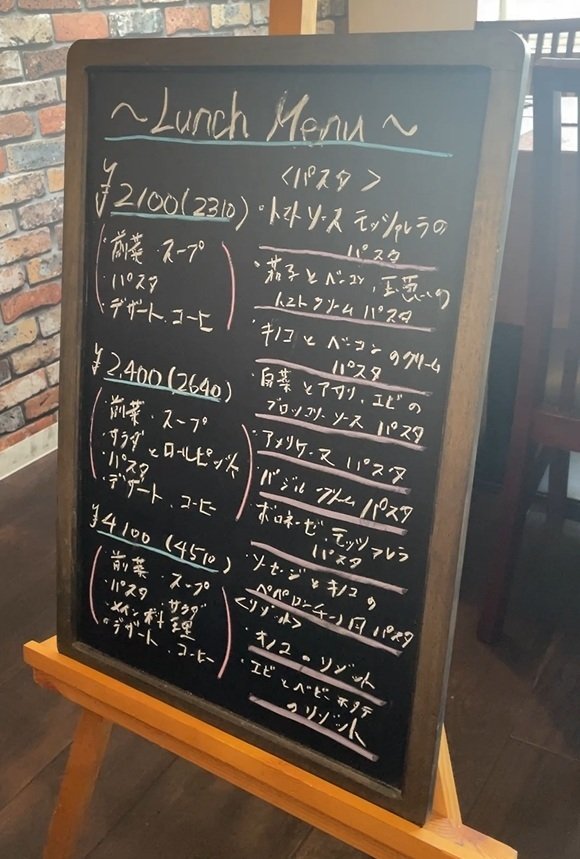 ～Lunch Menu～
¥2100(2310)
・前菜・スープ
・パスタ
・デザート・コーヒー
¥2,400(2640)
・前菜・スープ
・サラダとロールピッツァ
・パスタ
・デザート・コーヒー
¥4100(4510)
・前菜・スープ
・パスタ・サラダ
・メイン料理
・デザート・コーヒー
<パスタ>
・トマトソースモッツァレラの
パスタ
・茄子とベーコン、玉葱の
トマトクリームパスタ
・キノコとベーコンのクリーム
パスタ
・白菜とアサリ、エビの
ブロッコリーソースパスタ
・アメリケーヌパスタ
・バジルクリームパスタ
・ボロネーゼ・モッツァレラ
パスタ
・ソーセージとキノコの
ペペロンチーノ風パスタ
<リゾット>
・キノコのリゾット
・エビとベビーホタテ
のリゾット